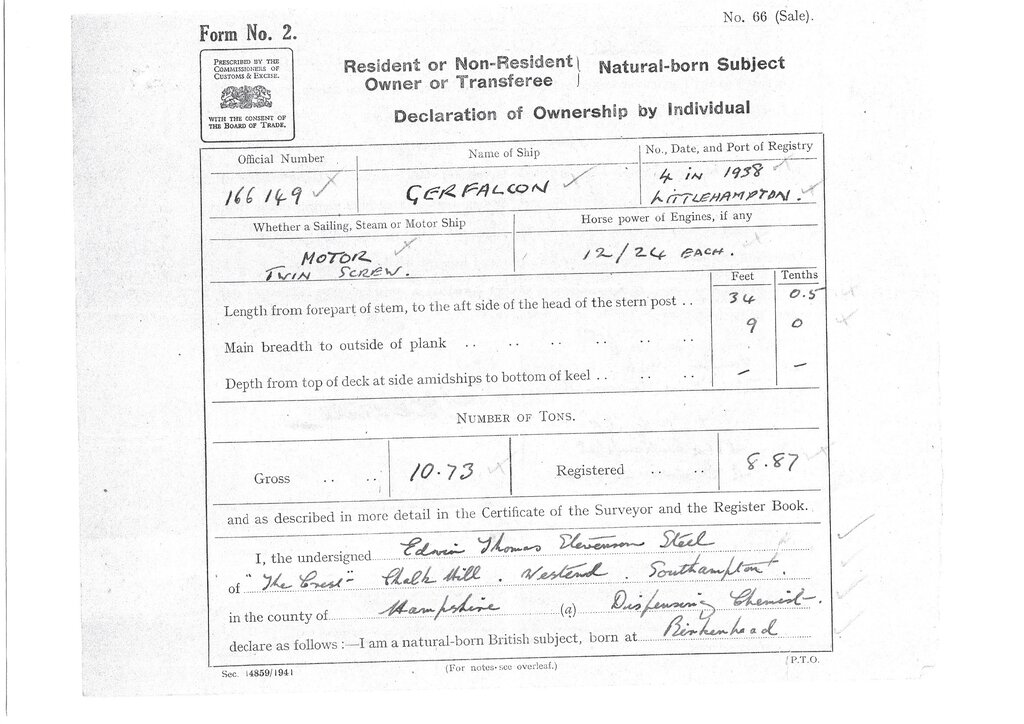 No. 66 (Sale).
Form No. 2.
PRESCRIBED BY THE
COMMISSIONERS OF
CUSTOMS & EXCISE.
WITH THE CONSENT OF
THE BOARD OF TRADE.
Resident or Non-Resident
Owner or Transferee
Natural-born Subject
Declaration of Ownership by Individual
Official Number
Name of Ship
No., Date, and Port of Registry
166149
GERFALCON
4 IN 1938
LITTLEHAMPTON.
Whether a Sailing, Steam or Motor Ship
Horse power of Engines, if any
MOTOR
TWIN SCREW.
12/24 EACH.
Feet Tenths
Length from forepart of stem, to the aft side of the head of the stern post .. 34 0.5
Main breadth to outside of plank .. .. .. .. .. .. 9 0
Depth from top of deck at side amidships to bottom of keel .. .. .. – –
NUMBER OF TONS.
Gross .. .. 10.73 Registered .. .. 8.87
and as described in more detail in the Certificate of the Surveyor and the Register Book.
I, the undersigned Edwin Thomas Stevenson Steel
of "The Crest" Chalk Hill. Westend. Southampton.
in the county of Hampshire (a) Dispensing Chemist.
declare as follows :—I am a natural-born British subject, born at Birkenhead
Sec. 14859/1941
(For notes see overleaf.)
P.T.O.